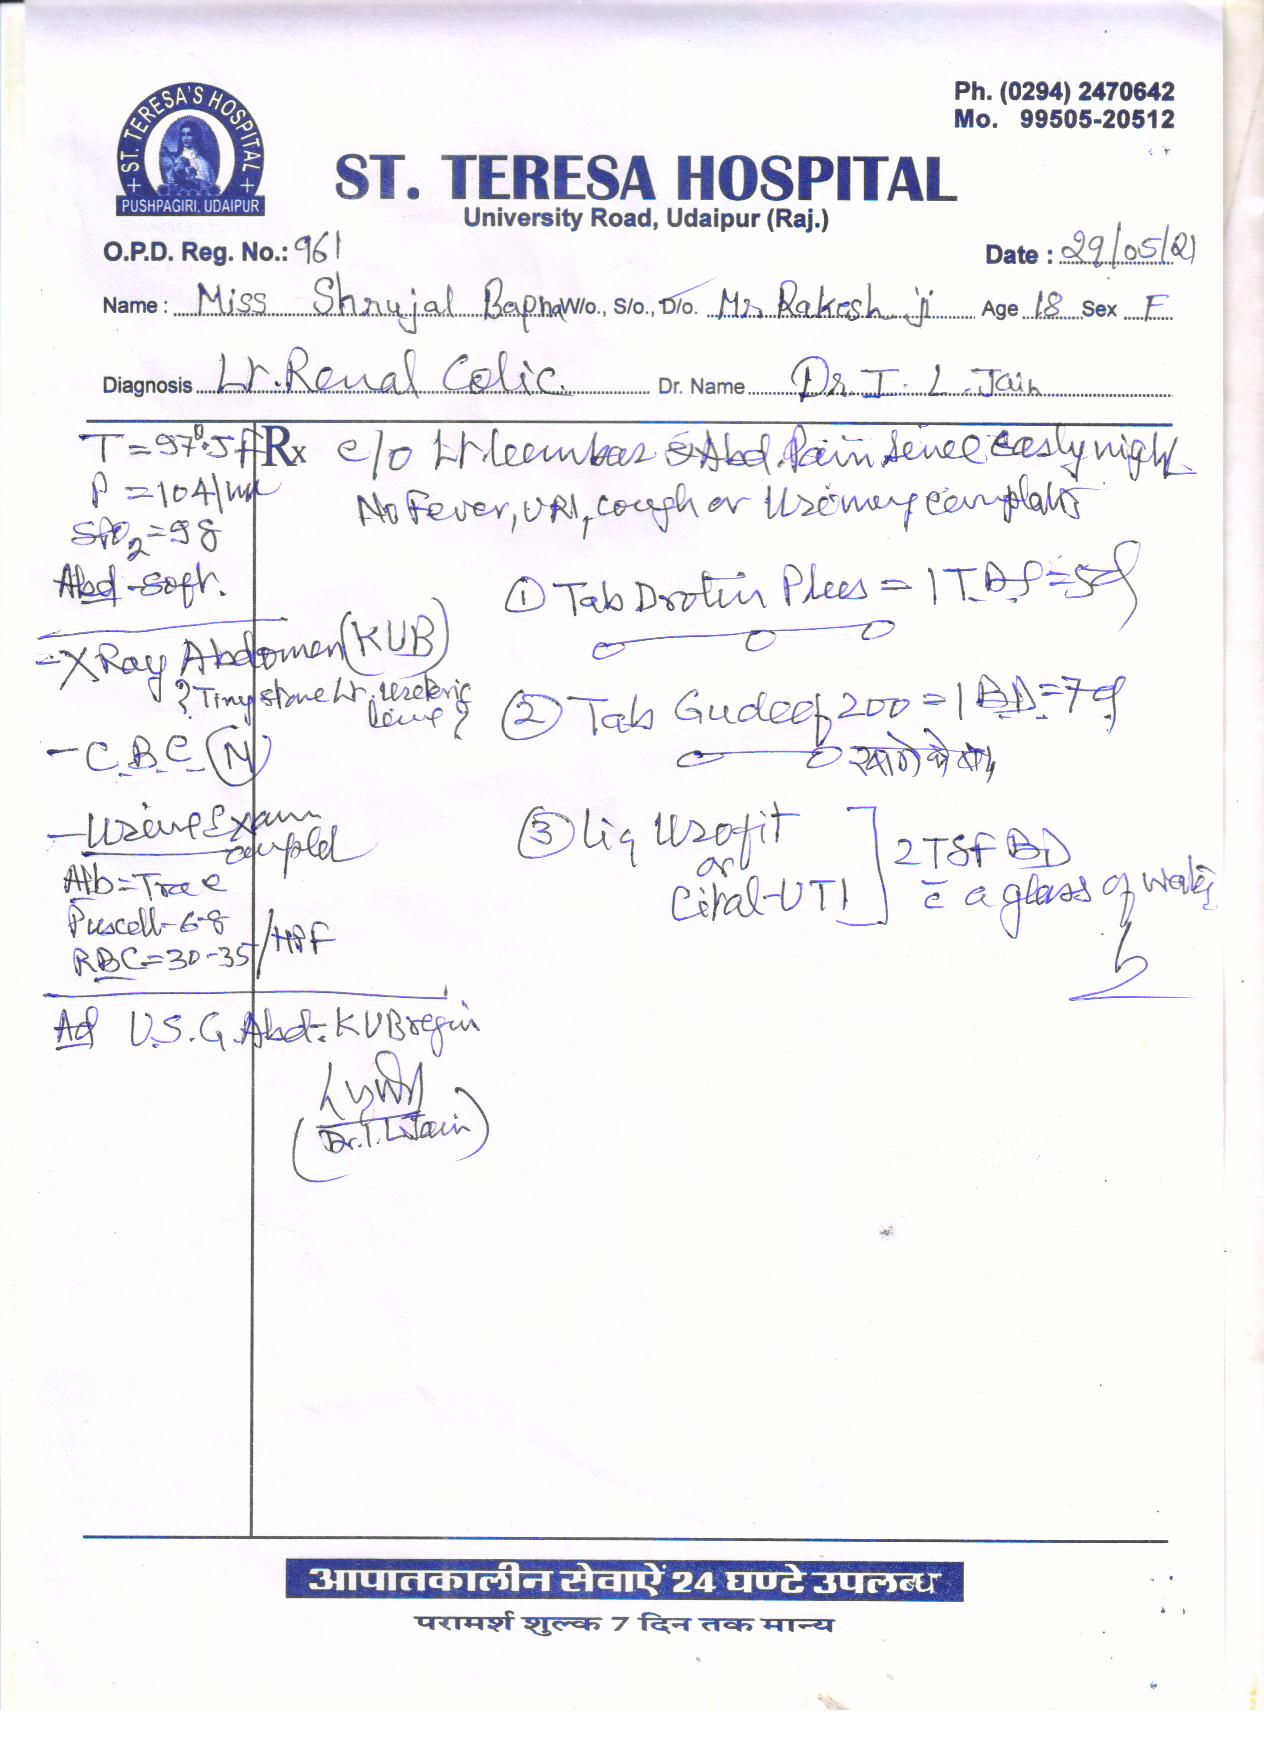 ST. TERESA'S HOSPITAL
PUSHPAGIRI, UDAIPUR
Ph. (0294) 2470642
Mo. 99505-20512
ST. TERESA HOSPITAL
University Road, Udaipur (Raj.)
O.P.D. Reg. No.: 961 Date : 29/05/21
Name : Miss Shrujal Bapna W/o., S/o., D/o. Mr Rakesh ji Age 18 Sex F
Diagnosis Lt. Renal Colic. Dr. Name Dr I. L. Jain
T = 97°.5f Rx c/o Lt. Abd. Pain early night
P = 104/
No Fever, URI, cough or
SPO2 = 98
Abd - Soft.
① Tab Drotin = 1 T.D.S = 5d
- X Ray Abdomen (KUB)
? Tiny stone Lt.
② Tab 200 = 1 BD = 7d
- C.B.C (N)
- Urine Exam
③ Liq Urofit
or
Cital-UTI
2 TSF BD
c̄ a glass of water
Alb = Trace
Puscell - 6-8
RBC = 30-35 /HPF
Ad U.S.G. Abd: KUB region
(Dr. I. L Jain)
आपातकालीन सेवाऐं 24 घण्टे उपलब्ध
परामर्श शुल्क 7 दिन तक मान्य